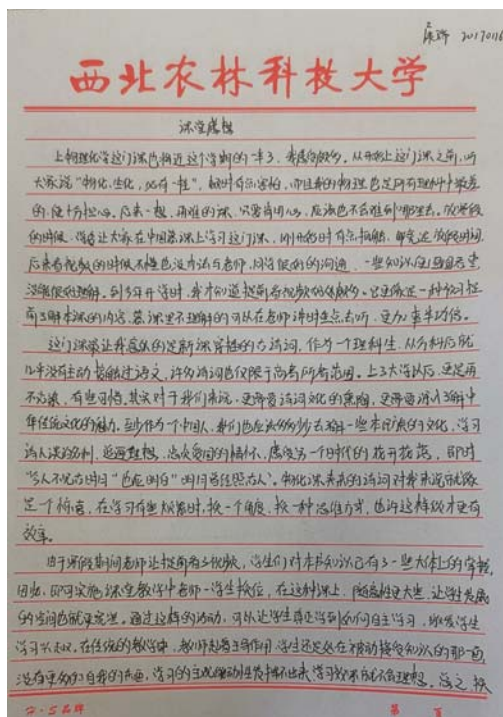 20170116
西北农林科技大学
课堂感想
上物理化学这门课也将近这个学期的一半了，我感闻颇多。从开始上这门课之前，听
大家说“物化、生化，必有一挂”，顿时有点害怕，而且我的物理也是所有理科中最差
的，便十分担心。后来一想，再难的课，只要肯用心，应该也不会难到哪里去。放寒假
的时候，老师让大家在中国慕课上学习这门课，刚开始时有点抵触，毕竟是放假时间，
后来看视频的时候不懂也没办法与老师、同学很好的沟通，一些知识便
没能很好理解。到今年开学时，我才知道提前看视频的好处。它更像是一种预习，
前了解本课的内容，慕课里不理解的可以在老师讲时重点去听，更加事半功倍。
这门课最让我喜欢的是新课穿插的古诗词，作为一个理科生，从分科后就
几乎没有主动接触过语文，许多诗词也仅限于高考所考范围。上了大学以后，更是再
不阅读，有些可惜，其实对于我们来说，更需要诗词文化的熏陶，更需要深入了解中
华传统文化的魅力。至少作为一个中国人，我们也应该多多少少去了解一些本民族的文化，学习
古人淡泊名利、追逐理想、忠于爱国的情怀，感受另一个时代的花开花落，即时
“今人不见古时月”也应明白“明月曾经照古人”。物化课带来的诗词对我来说就像
是一个桥道，在学习有些疲惫时，换一个角度、换一种思维方式，也许这样做才更有
效率。
由于寒假期间老师让提前看了视频，学生们对本书知识已有了一些大体上的掌握，
因此，即可实施课堂教学中老师-学生换位，在这种课上，随意性更大些，让学生发展
的空间也就更宽泛。通过这样的活动，可以让学生真正学到如何自主学习，激发学生
学习兴趣，在传统的教学中，教师起着主导作用，学生还是处在被动接受知识的那一面，
没有更多的自我的色画，学习的主观能动性发挥不出来，学习效果就不会理想。总之，换
第 页